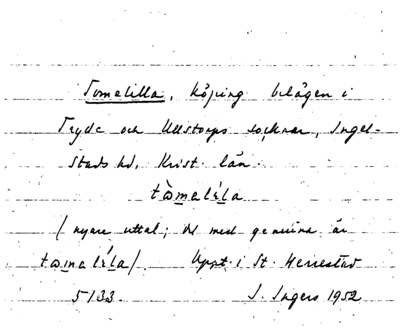 Tomelilla, köping belägen i
Tryde och Ullstorps socknar, Ingel-
stads hd, Krist. län.
tωmelila
(nyare uttal; det med genuina är
tωmelila). Uppt. i St. Herrestad
5133. I. Ingers 1952